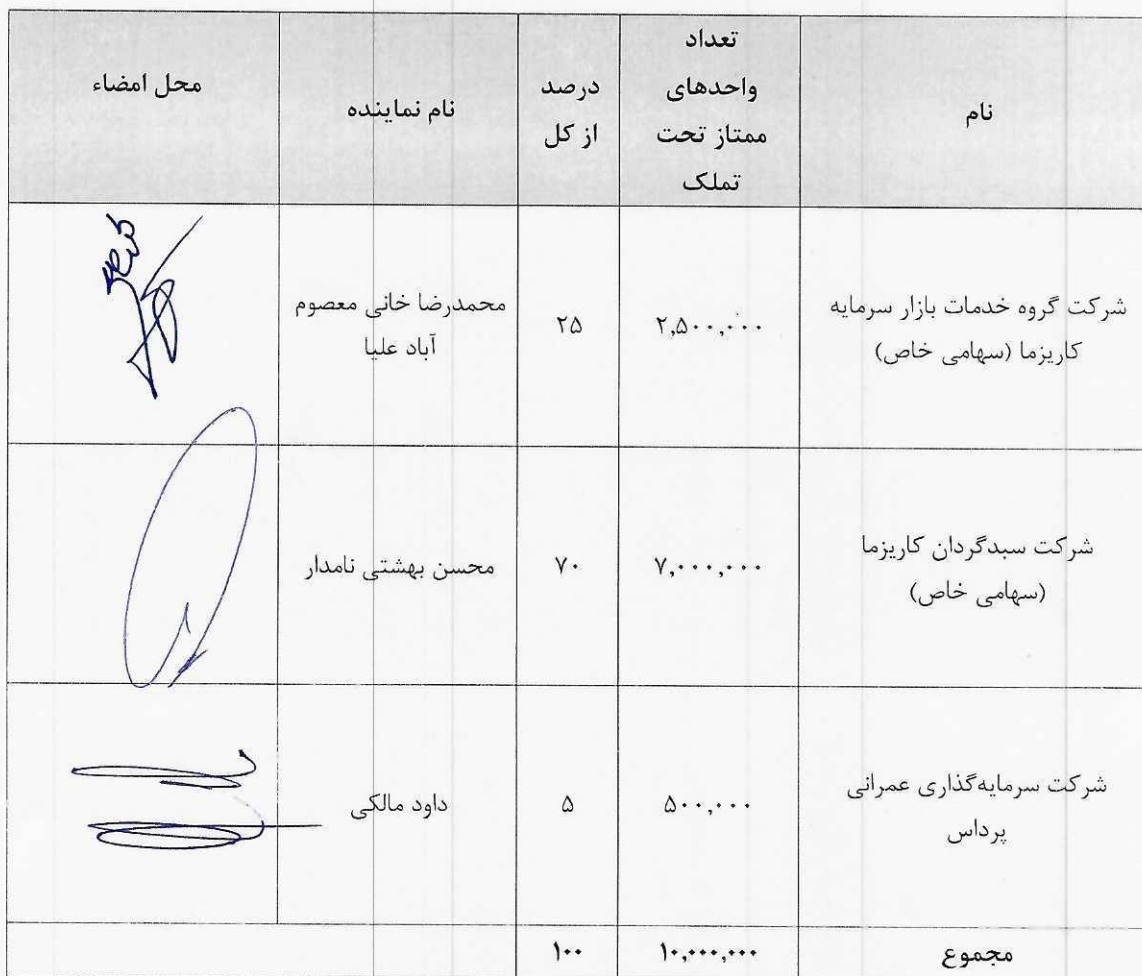 نام
تعداد
واحدهای
ممتاز تحت
تملک
درصد
از کل
نام نماینده
محل امضاء
شرکت گروه خدمات بازار سرمایه
کاریزما (سهامی خاص)
۲,۵۰۰,۰۰۰
۲۵
محمدرضا خانی معصوم
آباد علیا
شرکت سبدگردان کاریزما
(سهامی خاص)
۷,۰۰۰,۰۰۰
۷۰
محسن بهشتی نامدار
شرکت سرمایه‌گذاری عمرانی
پرداس
۵۰۰,۰۰۰
۵
داود مالکی
مجموع
۱۰,۰۰۰,۰۰۰
۱۰۰